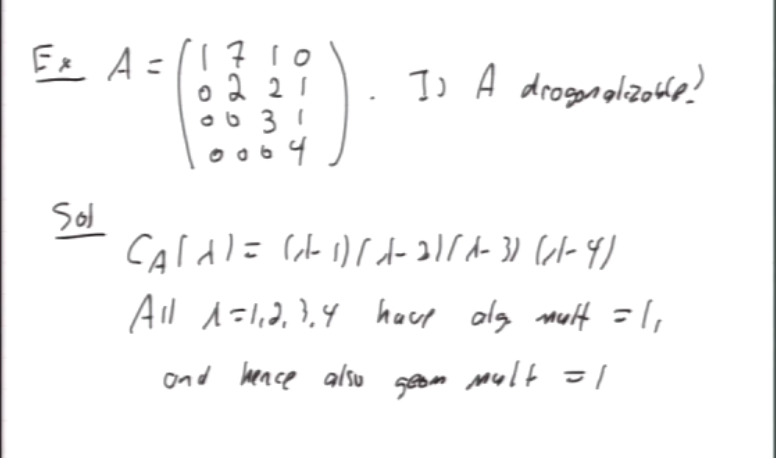 Ex A = (1 7 1 0
0 2 2 1
0 0 3 1
0 0 0 4). Is A diagonalizable?
Sol
C_A(λ) = (λ-1)(λ-2)(λ-3)(λ-4)
All λ=1,2,3,4 have alg mult = 1,
and hence also geom mult = 1